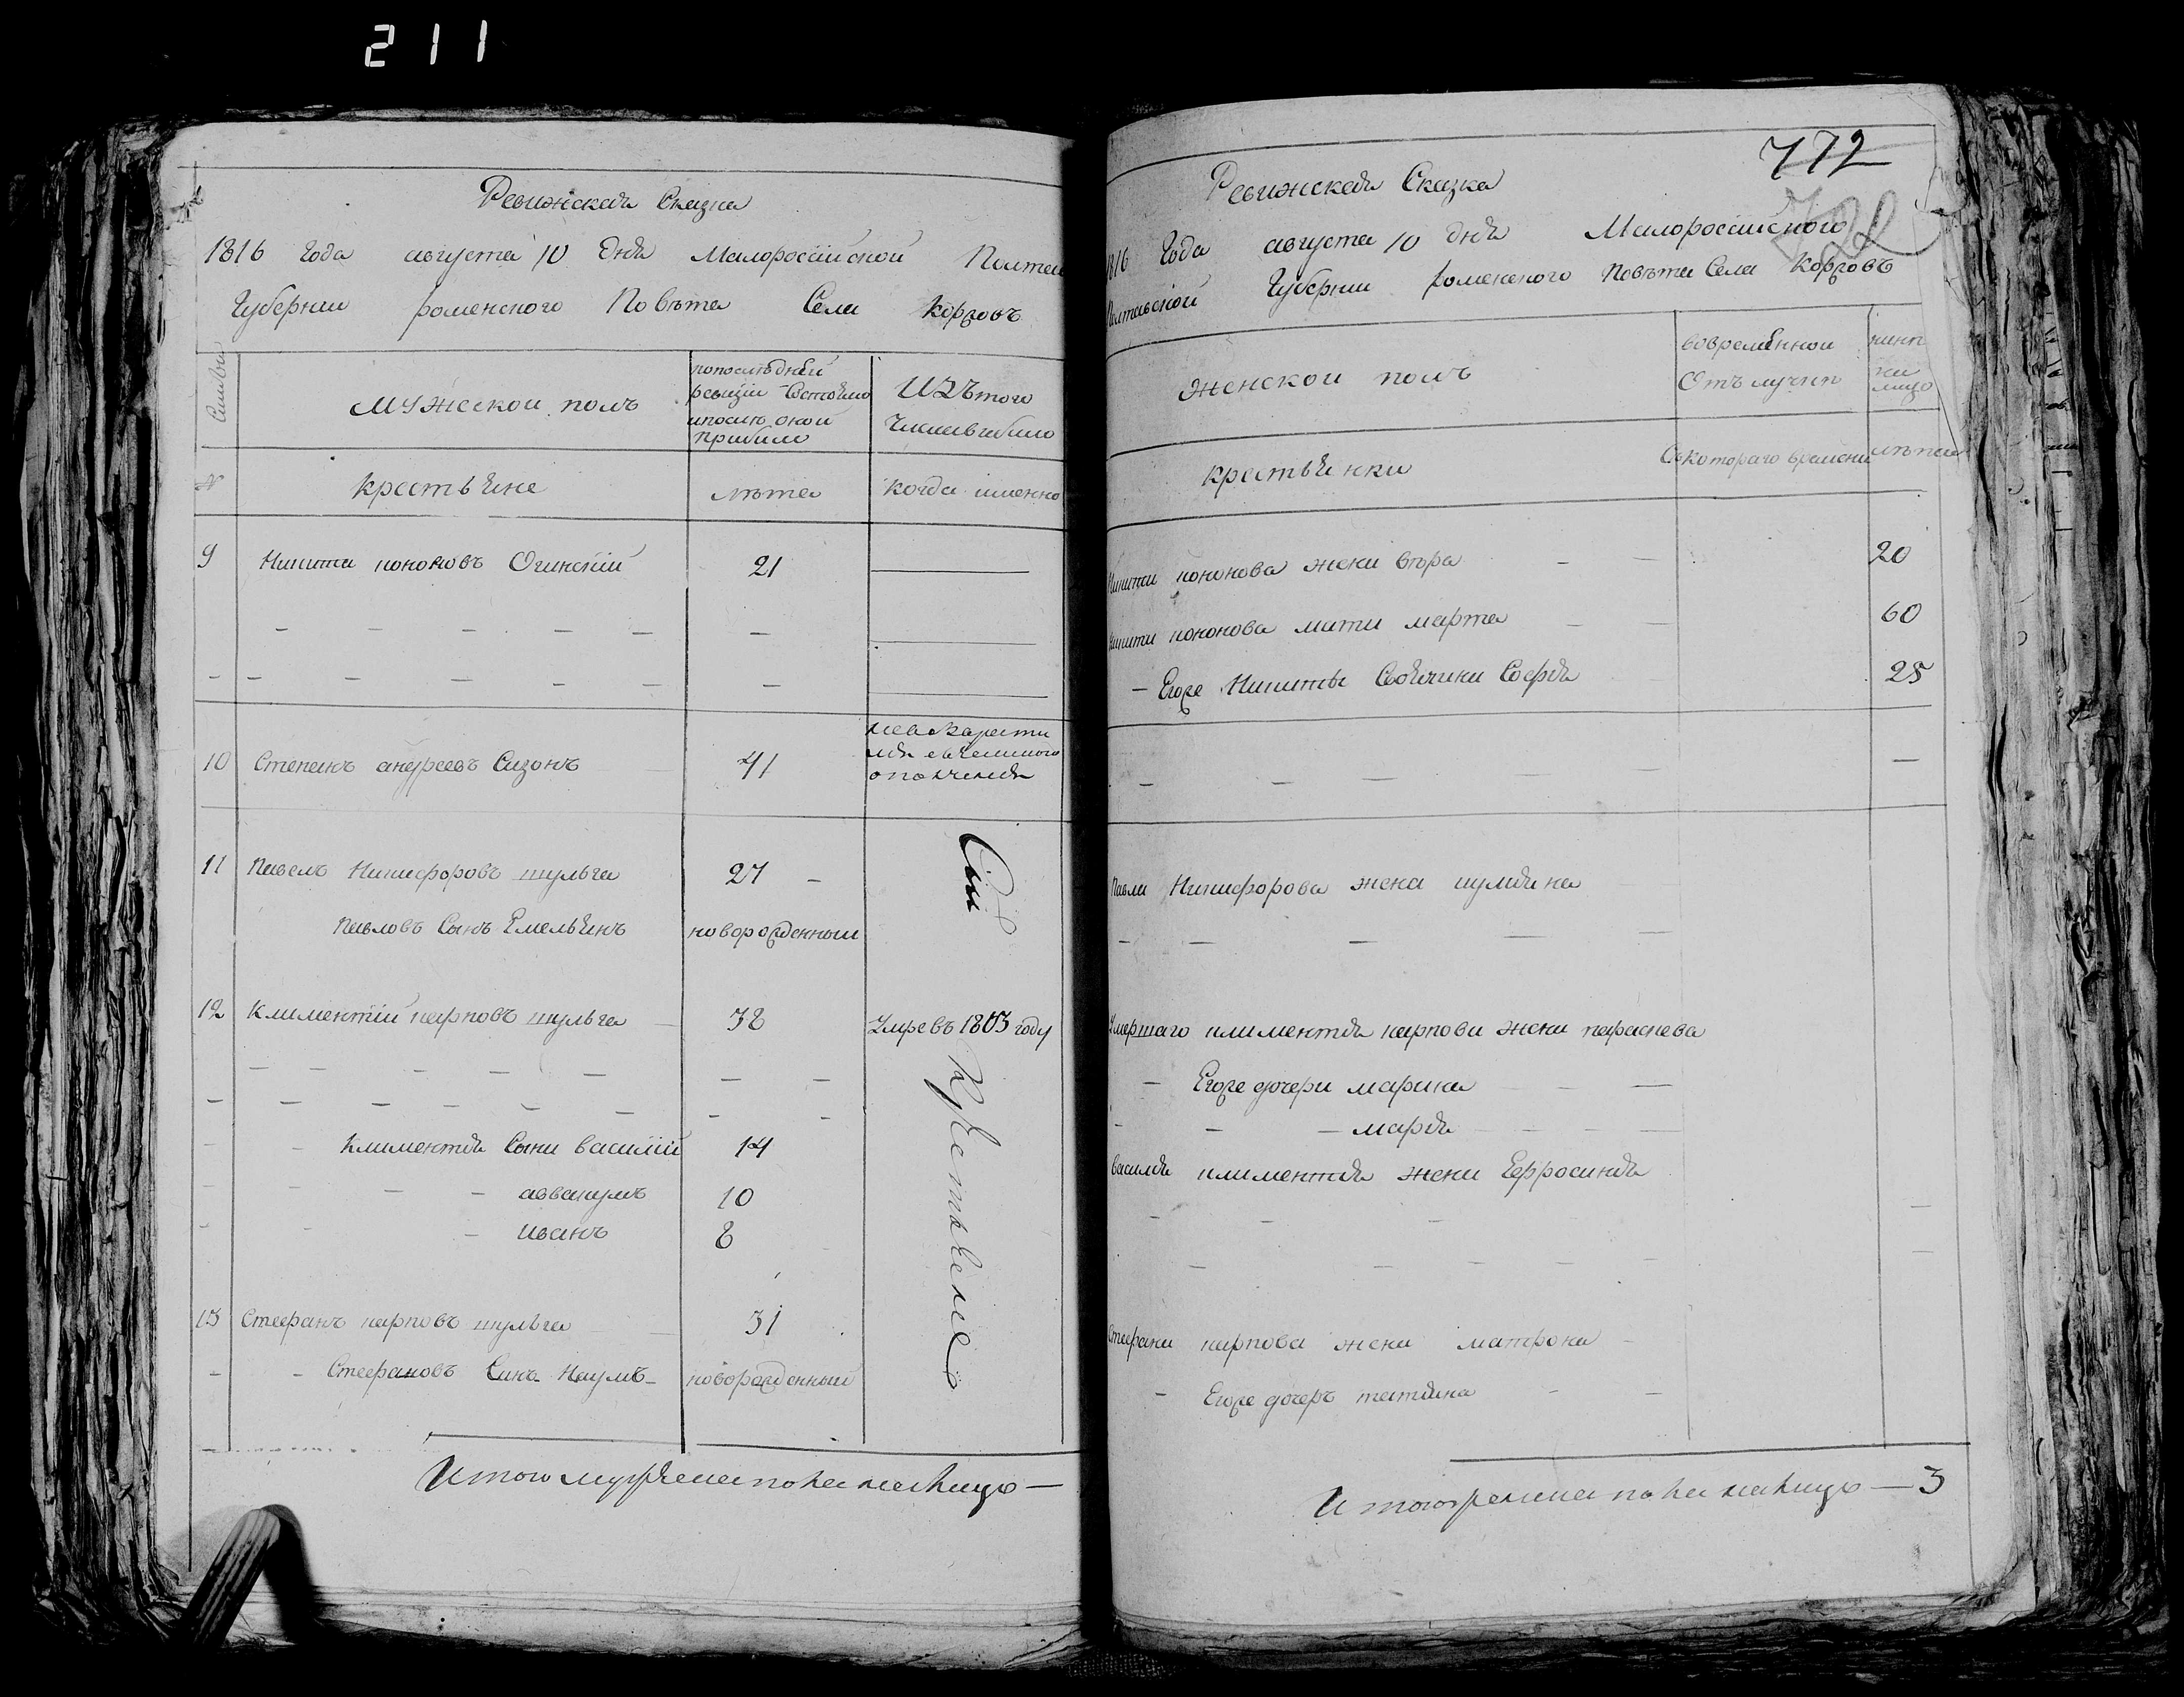 211
Ревижская Сказка
1816 Года августа 10 дня Малоросiйской Полтав
Губернии роменского Повѣта Села Коржовъ
Семьи
Мужескои полъ
попослѣдней ревизiи Состояло ипослѣ оной прибыло
Изъ того Числа выбыло
№
крестьяне
лѣта
Когда именно
9 Никита кононовъ Огинскiй 21
10 Степанъ андреевъ Сизонъ 41
ополчения
11 Павелъ Никифоровъ шульга 27
Павловъ Сынъ Емельянъ новорожденный
12 Климентiй карповъ шульга 38 Умре въ 1803 году
Климентия Сыны василiй 14
аввакумъ 10
иванъ 8
13 Стефанъ карповъ шульга 31
Стефановъ Сынъ Наумъ новорожденный
Сiи
Крестьяне
Итого мужеска пола налицо
772
Ревижская Сказка
1816 Года августа 10 дня Малоросiйского
Полтавской Губернии роменского Повѣта Села Коржовъ
женскои полъ
вовременной Отлучке
ныне на лицо
крестьянки
Скотораго времени
лѣта
Никиты кононова жена вѣра 20
Никиты кононова мати марта 60
Егоже Никиты Своячина София 25
Павла Никифорова жена иулияна
Умершаго климентия карпова жена параскева
Егоже дочери марина
мария
василия климентия жена Ефросиния
Стефана карпова жена матрона
Егоже дочерь татияна
Итого женска пола налицо — 3